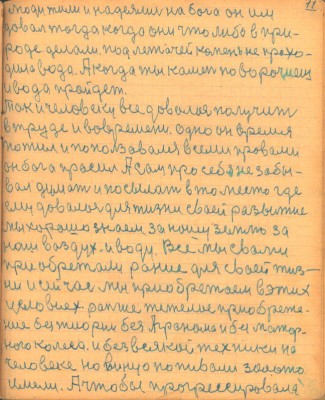 11
сподители и надеялись на бога он им
давал тогда когда они что либо в при-
роде делали. под лежачей камень не прохо-
дила вода. А когда ты камен поворочаеш
и вода пройдет.
Так и человеку все давалося получит
в труде и вовремени. одно он время
потом и попользовался всеми правами
он бога просил А сам про себя не забы-
вал думат и посылат в то место где
ему давалося для жизни своей развитие
мы хорошо знаем за нашу землю за
наш воздух. и воду. Все мы свами
приобретали ранше для своей жиз-
ни и сейчас мы приобретаем в этих
условиех ранше тяжелые приобрете-
ние без теории без Агранома и без мотор-
ного колеса. и без всякой техники на
человеке но
имели. А чтобы прогрессировала